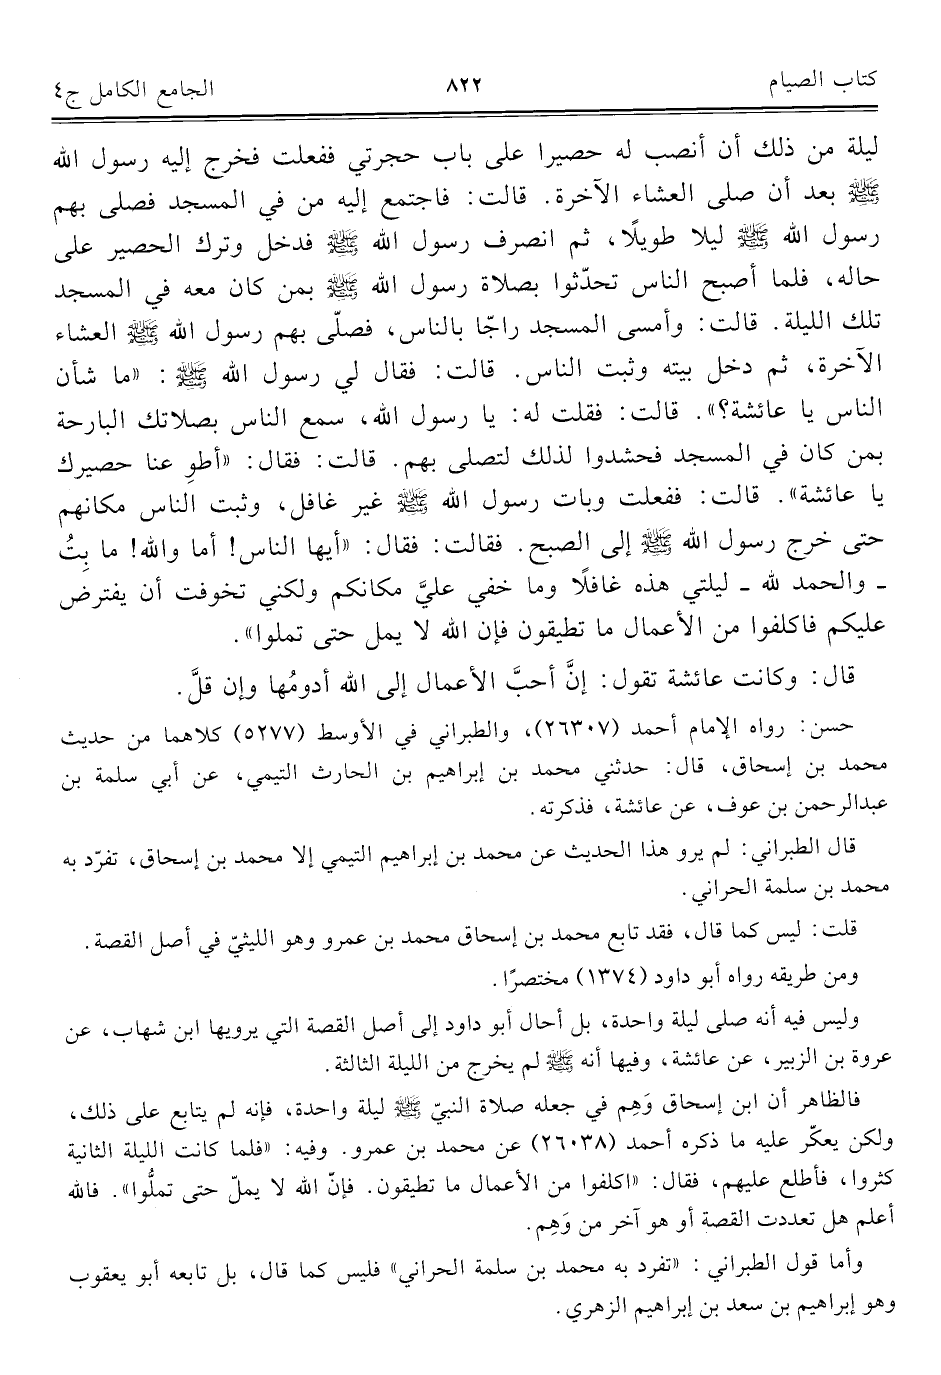 كتاب الصيام ٨٢٢ الجامع الكامل ج٤
ليلة من ذلك أن أنصب له حصيرا على باب حجرتي ففعلت فخرج إليه رسول الله
ﷺ بعد أن صلى العشاء الآخرة. قالت: فاجتمع إليه من في المسجد فصلى بهم
رسول الله ﷺ ليلا طويلًا، ثم انصرف رسول الله ﷺ فدخل وترك الحصير على
حاله، فلما أصبح الناس تحدّثوا بصلاة رسول الله ﷺ بمن كان معه في المسجد
تلك الليلة. قالت: وأمسى المسجد راجّا بالناس، فصلّى بهم رسول الله ﷺ العشاء
الآخرة، ثم دخل بيته وثبت الناس. قالت: فقال لي رسول الله ﷺ: «ما شأن
الناس يا عائشة؟». قالت: فقلت له: يا رسول الله، سمع الناس بصلاتك البارحة
بمن كان في المسجد فحشدوا لذلك لتصلى بهم. قالت: فقال: «أطوِ عنا حصيرك
يا عائشة». قالت: ففعلت وبات رسول الله ﷺ غير غافل، وثبت الناس مكانهم
حتى خرج رسول الله ﷺ إلى الصبح. فقالت: فقال: «أيها الناس! أما والله! ما بِتُ
ـ والحمد لله ـ ليلتي هذه غافلًا وما خفي عليَّ مكانكم ولكني تخوفت أن يفترض
عليكم فاكلفوا من الأعمال ما تطيقون فإن الله لا يمل حتى تملوا».
قال: وكانت عائشة تقول: إنَّ أحبَّ الأعمال إلى الله أدومُها وإن قلَّ.
حسن: رواه الإمام أحمد (٢٦٣٠٧)، والطبراني في الأوسط (٥٢٧٧) كلاهما من حديث
محمد بن إسحاق، قال: حدثني محمد بن إبراهيم بن الحارث التيمي، عن أبي سلمة بن
عبدالرحمن بن عوف، عن عائشة، فذكرته.
قال الطبراني: لم يرو هذا الحديث عن محمد بن إبراهيم التيمي إلا محمد بن إسحاق، تفرّد به
محمد بن سلمة الحراني.
قلت: ليس كما قال، فقد تابع محمد بن إسحاق محمد بن عمرو وهو الليثيّ في أصل القصة.
ومن طريقه رواه أبو داود (١٣٧٤) مختصرًا.
وليس فيه أنه صلى ليلة واحدة، بل أحال أبو داود إلى أصل القصة التي يرويها ابن شهاب، عن
عروة بن الزبير، عن عائشة، وفيها أنه ﷺ لم يخرج من الليلة الثالثة.
فالظاهر أن ابن إسحاق وَهِم في جعله صلاة النبيّ ﷺ ليلة واحدة، فإنه لم يتابع على ذلك،
ولكن يعكّر عليه ما ذكره أحمد (٢٦٠٣٨) عن محمد بن عمرو. وفيه: «فلما كانت الليلة الثانية
كثروا، فأطلع عليهم، فقال: «اكلفوا من الأعمال ما تطيقون. فإنّ الله لا يملّ حتى تملُّوا». فالله
أعلم هل تعددت القصة أو هو آخر من وَهِم.
وأما قول الطبراني: «تفرد به محمد بن سلمة الحراني» فليس كما قال، بل تابعه أبو يعقوب
وهو إبراهيم بن سعد بن إبراهيم الزهري.